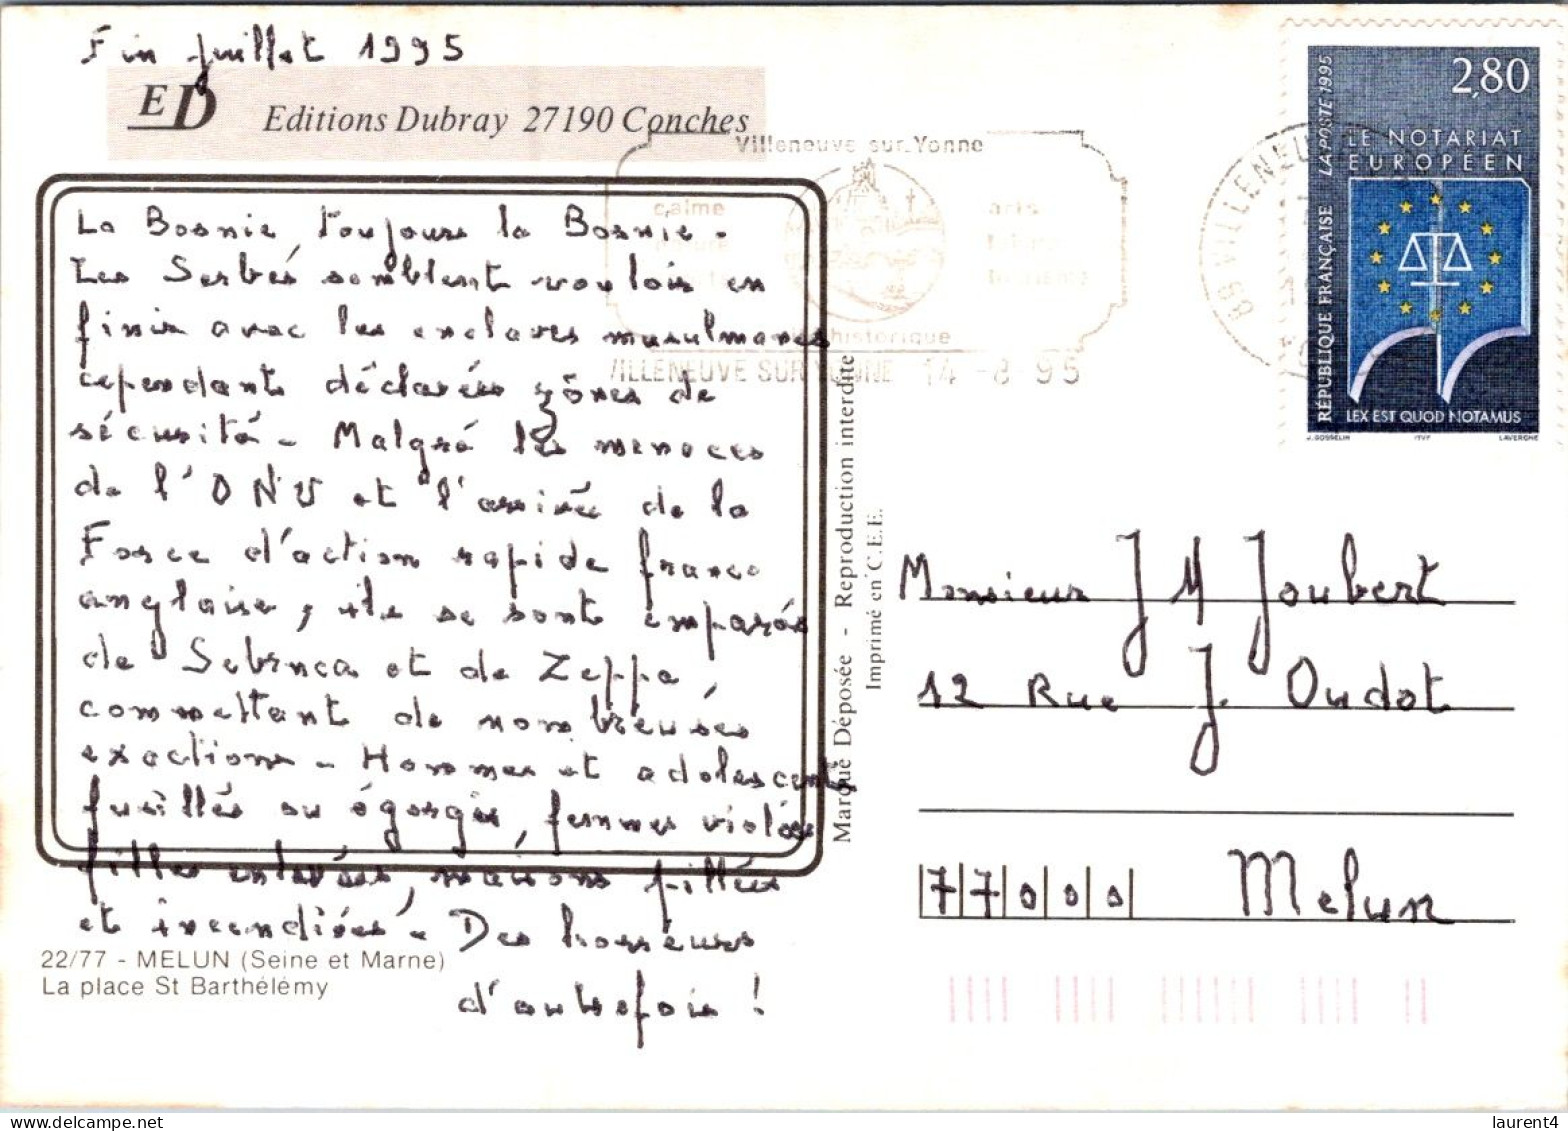 Fin juillet 1995
ED
Editions Dubray 27190 Conches
La Bosnie, toujours la Bosnie.
Les Serbes semblent vouloir en
finir avec les enclaves musulmanes
cependant déclarées zônes de
sécurité. Malgré les menaces
de l'ONU et l'arrivée de la
Force d'action rapide franco
anglaise, ils se sont emparés
de Sebrnca et de Zeppa,
commettant de nombreuses
exactions. Hommes et adolescents
fusillés ou égorgés, femmes violées
filles enlevées, maisons pillées
et incendiées. Des horreurs
d'autrefois !
22/77 - MELUN (Seine et Marne)
La place St Barthélémy
Marque Déposée - Reproduction interdite
Imprimé en C.E.E.
Villeneuve sur Yonne
calme
arts
historique
VILLENEUVE SUR YONNE 14 -8 95
89 VILLENEU
2,80
LA POSTE 1995
LE NOTARIAT
EUROPÉEN
RÉPUBLIQUE FRANÇAISE
LEX EST QUOD NOTAMUS
J. GOSSELIN ITVF LAVERGNE
Monsieur J M Joubert
12 Rue J. Oudot
77000 Melun
laurent4